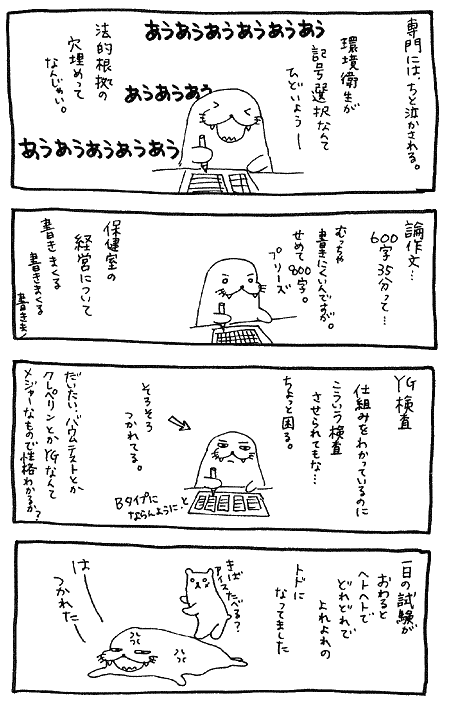 専門には、ちと泣かされる。
環境衛生が
記号選択なんて
ひどいようー
あうあうあうあうあうあう
あうあうあう
あうあうあうあうあう
法的根拠の
穴埋めって
なんじゃい。
論作文…
600字35分って…
むっちゃ
書きにくいんですが。
せめて800字。
プリーズ
保健室の
経営について
書きまくる
書きまくる
書きま
YG検査
仕組みをわかっているのに
こういう検査
させられてもな…
ちょっと困る。
そろそろ
つかれてる。
Bタイプに
ならんように…と
だいたい、バウムテストとか
クレペリンとかYGなんて
メジャーなもので性格わかるか?
一日の試験が
おわると
ヘトヘトで
どれどれで
よれよれの
トドに
なってました
きば
アイスたべる?
はー
つかれたー